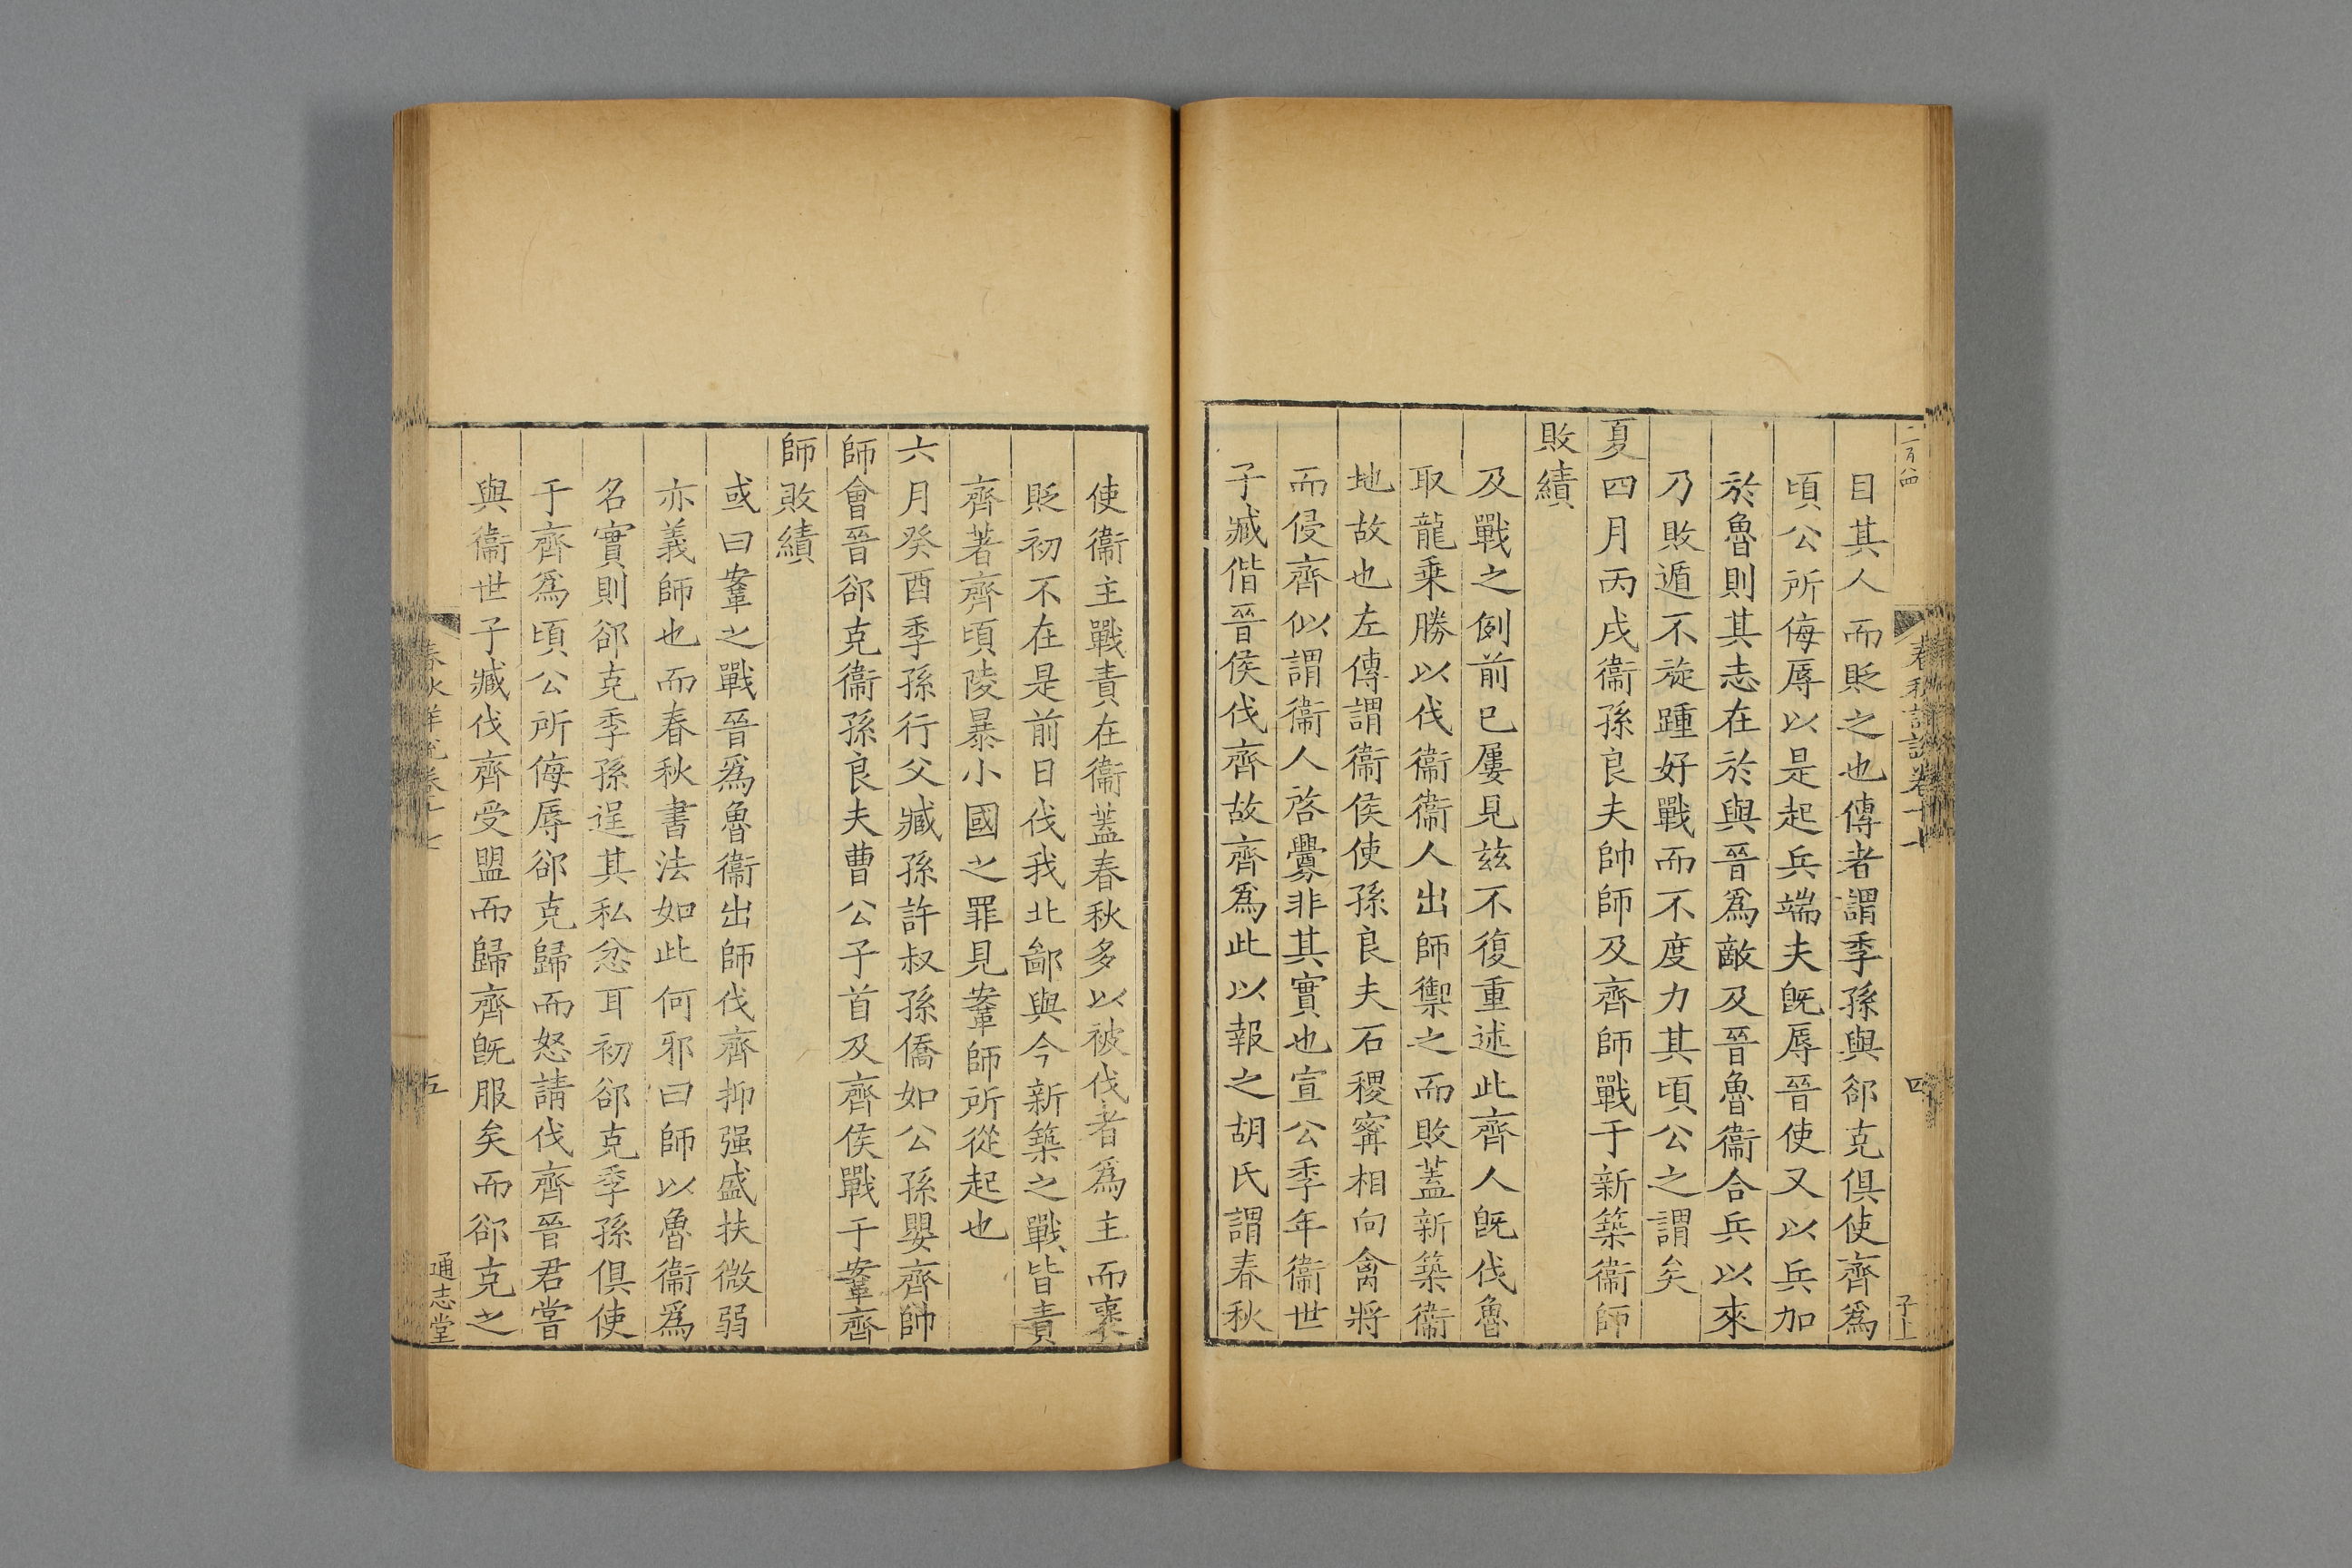 二百八四
春秋詳說卷十七
四
子上
目其人而貶之也傳者謂季孫與郤克俱使齊爲
頃公所侮辱以是起兵端夫旣辱晉使又以兵加
於魯則其志在於與晉爲敵及晉魯衞合兵以來
乃敗遁不旋踵好戰而不度力其頃公之謂矣
夏四月丙戌衞孫良夫帥師及齊師戰于新築衞師
敗績
及戰之例前已屢見茲不復重述此齊人旣伐魯
取龍乘勝以伐衞衞人出師禦之而敗蓋新築衞
地故也左傳謂衞侯使孫良夫石稷甯相向禽將
而侵齊似謂衞人啓釁非其實也宣公季年衞世
子臧偕晉侯伐齊故齊爲此以報之胡氏謂春秋
使衞主戰責在衞蓋春秋多以被伐者爲主而襃
貶初不在是前日伐我北鄙與今新築之戰皆責
齊著齊頃陵暴小國之罪見鞌師所從起也
六月癸酉季孫行父臧孫許叔孫僑如公孫嬰齊帥
師會晉郤克衞孫良夫曹公子首及齊侯戰于鞌齊
師敗績
或曰鞌之戰晉爲魯衞出師伐齊抑强盛扶微弱
亦義師也而春秋書法如此何邪曰師以魯衞爲
名實則郤克季孫逞其私忿耳初郤克季孫俱使
于齊爲頃公所侮辱郤克歸而怒請伐齊晉君嘗
與衞世子臧伐齊受盟而歸齊旣服矣而郤克之
春秋詳說卷十七
五
通志堂